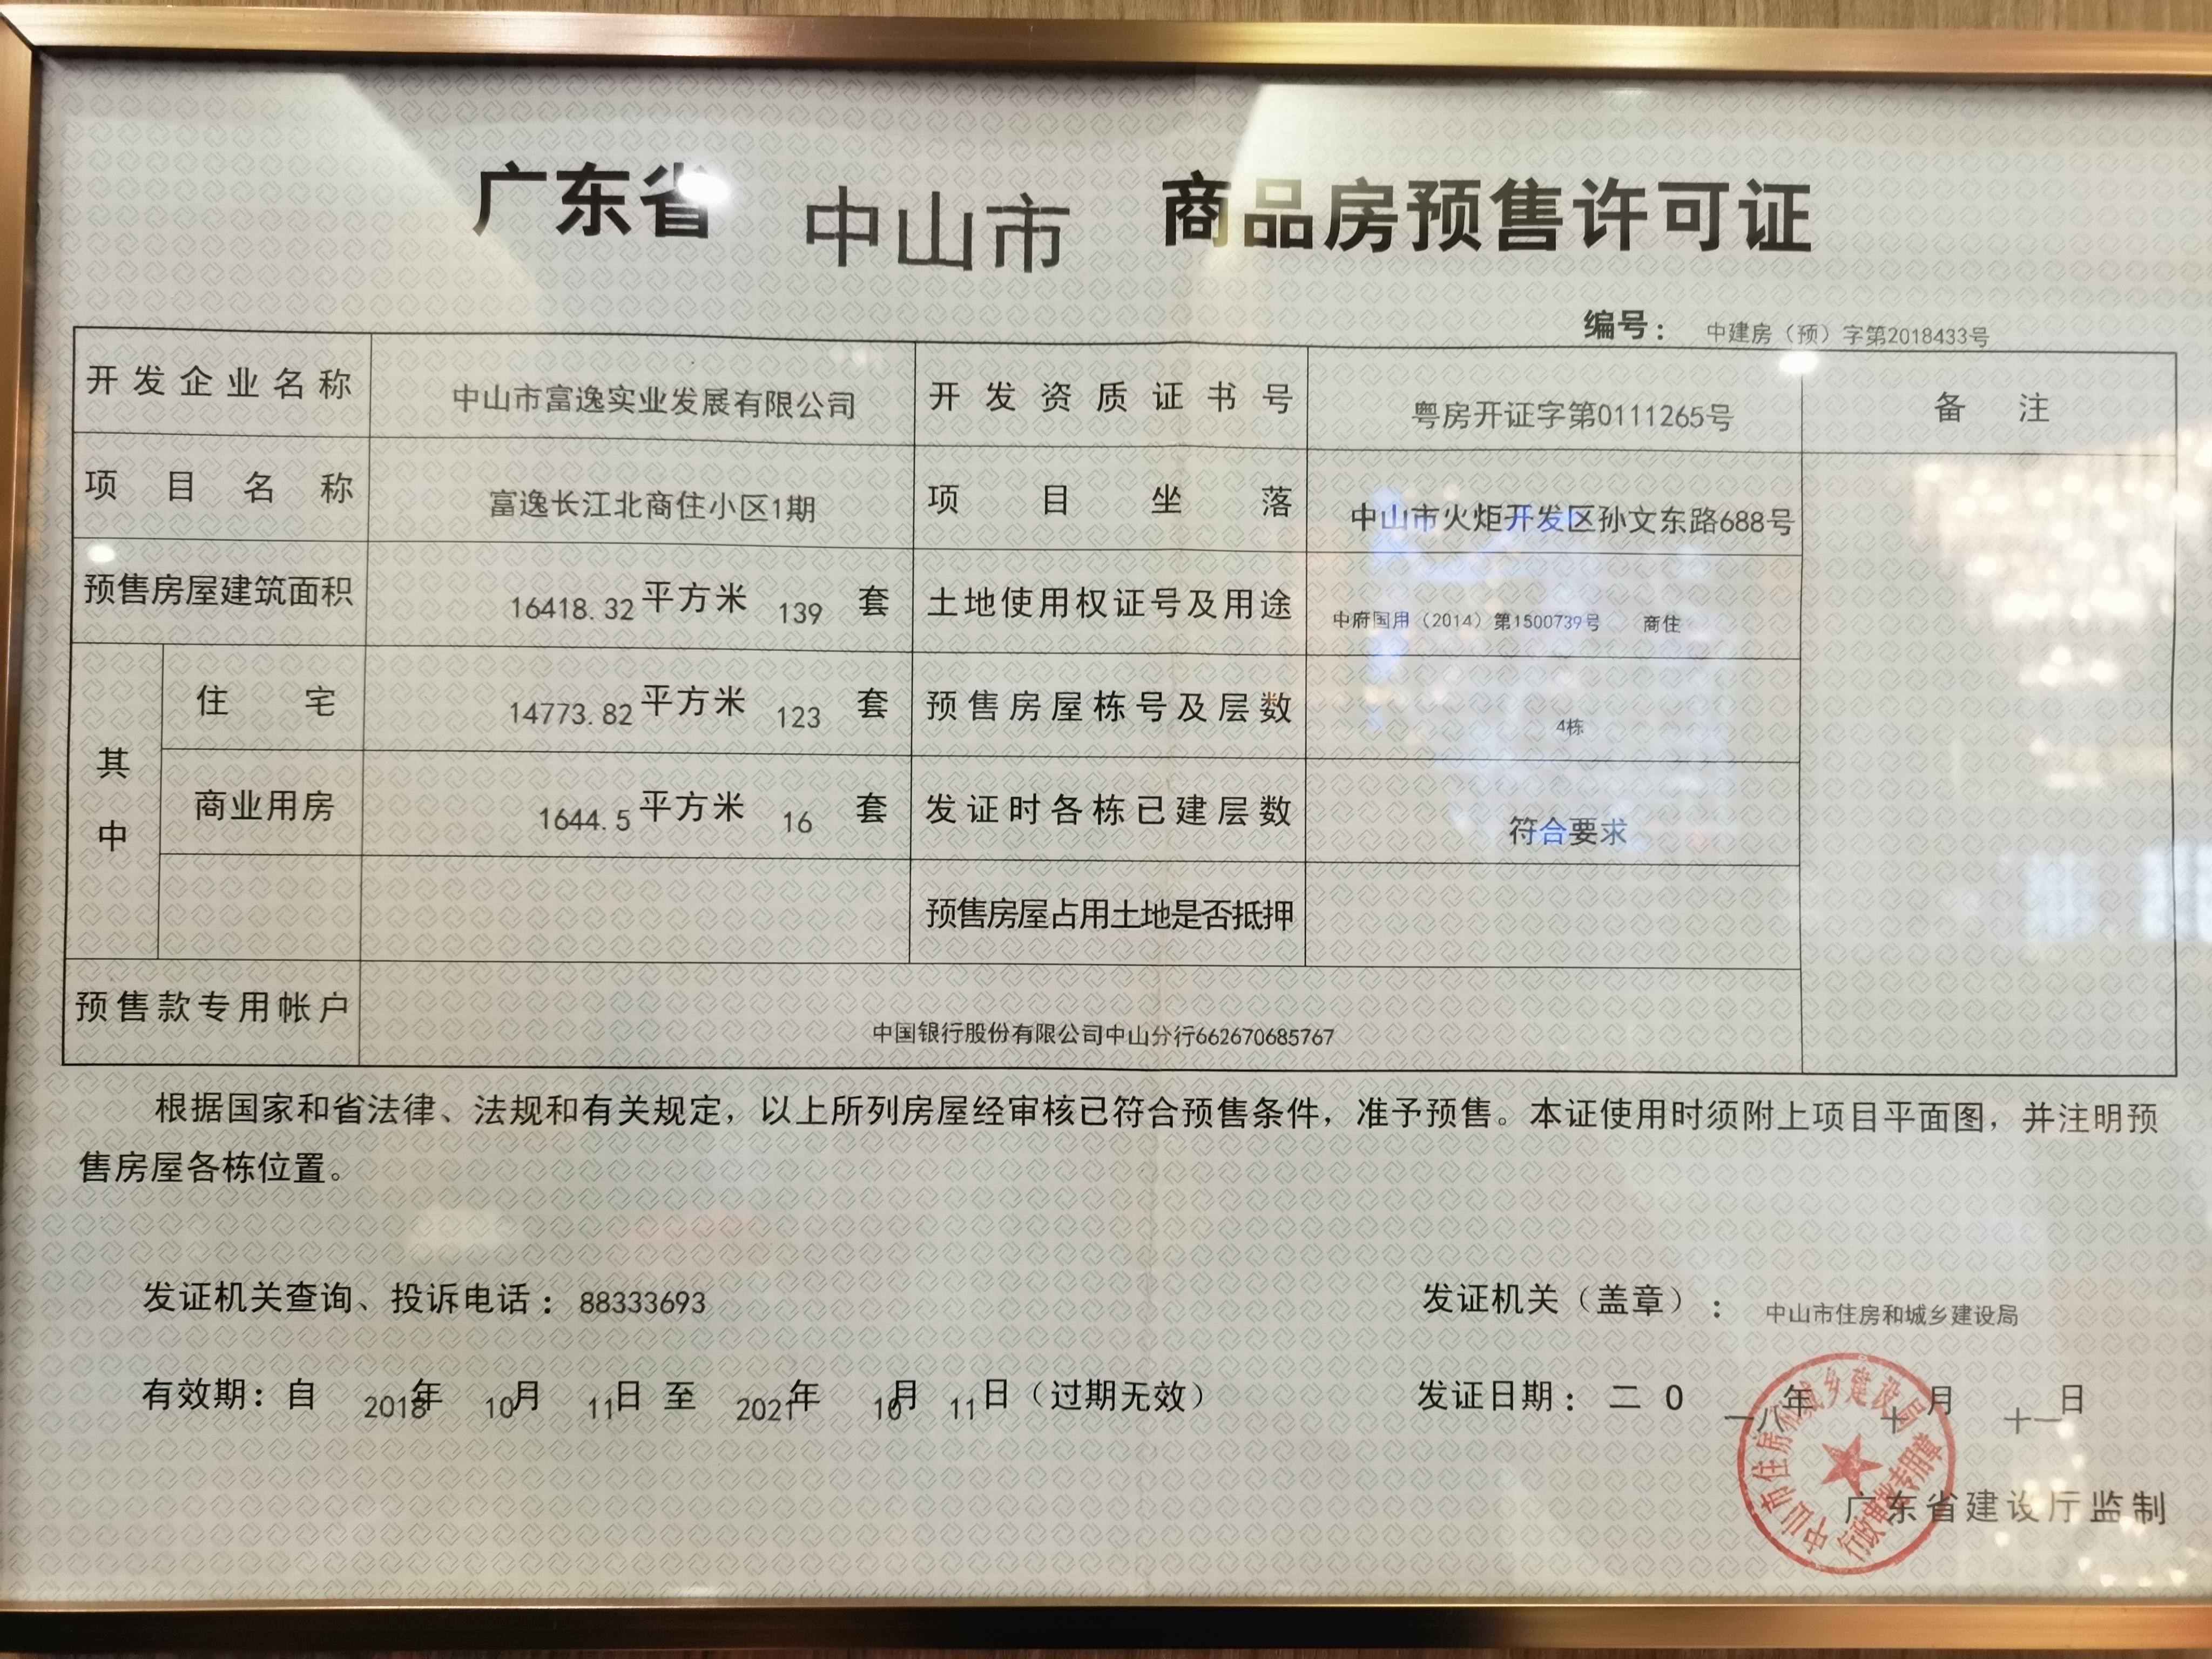 广东省 中山市 商品房预售许可证
编号： 中建房（预）字第2018433号
开发企业名称 中山市富逸实业发展有限公司 开发资质证书号 粤房开证字第0111265号 备注
项目名称 富逸长江北商住小区1期 项目坐落 中山市火炬开发区孙文东路688号
预售房屋建筑面积 16418.32平方米 139 套 土地使用权证号及用途 中府国用（2014）第1500739号 商住
其中
住宅 14773.82平方米 123 套 预售房屋栋号及层数 4栋
商业用房 1644.5平方米 16 套 发证时各栋已建层数 符合要求
预售房屋占用土地是否抵押
预售款专用帐户 中国银行股份有限公司中山分行662670685767
根据国家和省法律、法规和有关规定，以上所列房屋经审核已符合预售条件，准予预售。本证使用时须附上项目平面图，并注明预
售房屋各栋位置。
发证机关查询、投诉电话：88333693 发证机关（盖章）： 中山市住房和城乡建设局
有效期：自 2018年 10月 11日 至 2021年 10月 11日（过期无效） 发证日期：二0一八年 十月 十一日
中山市住房和城乡建设局
行政审批专用章
广东省建设厅监制